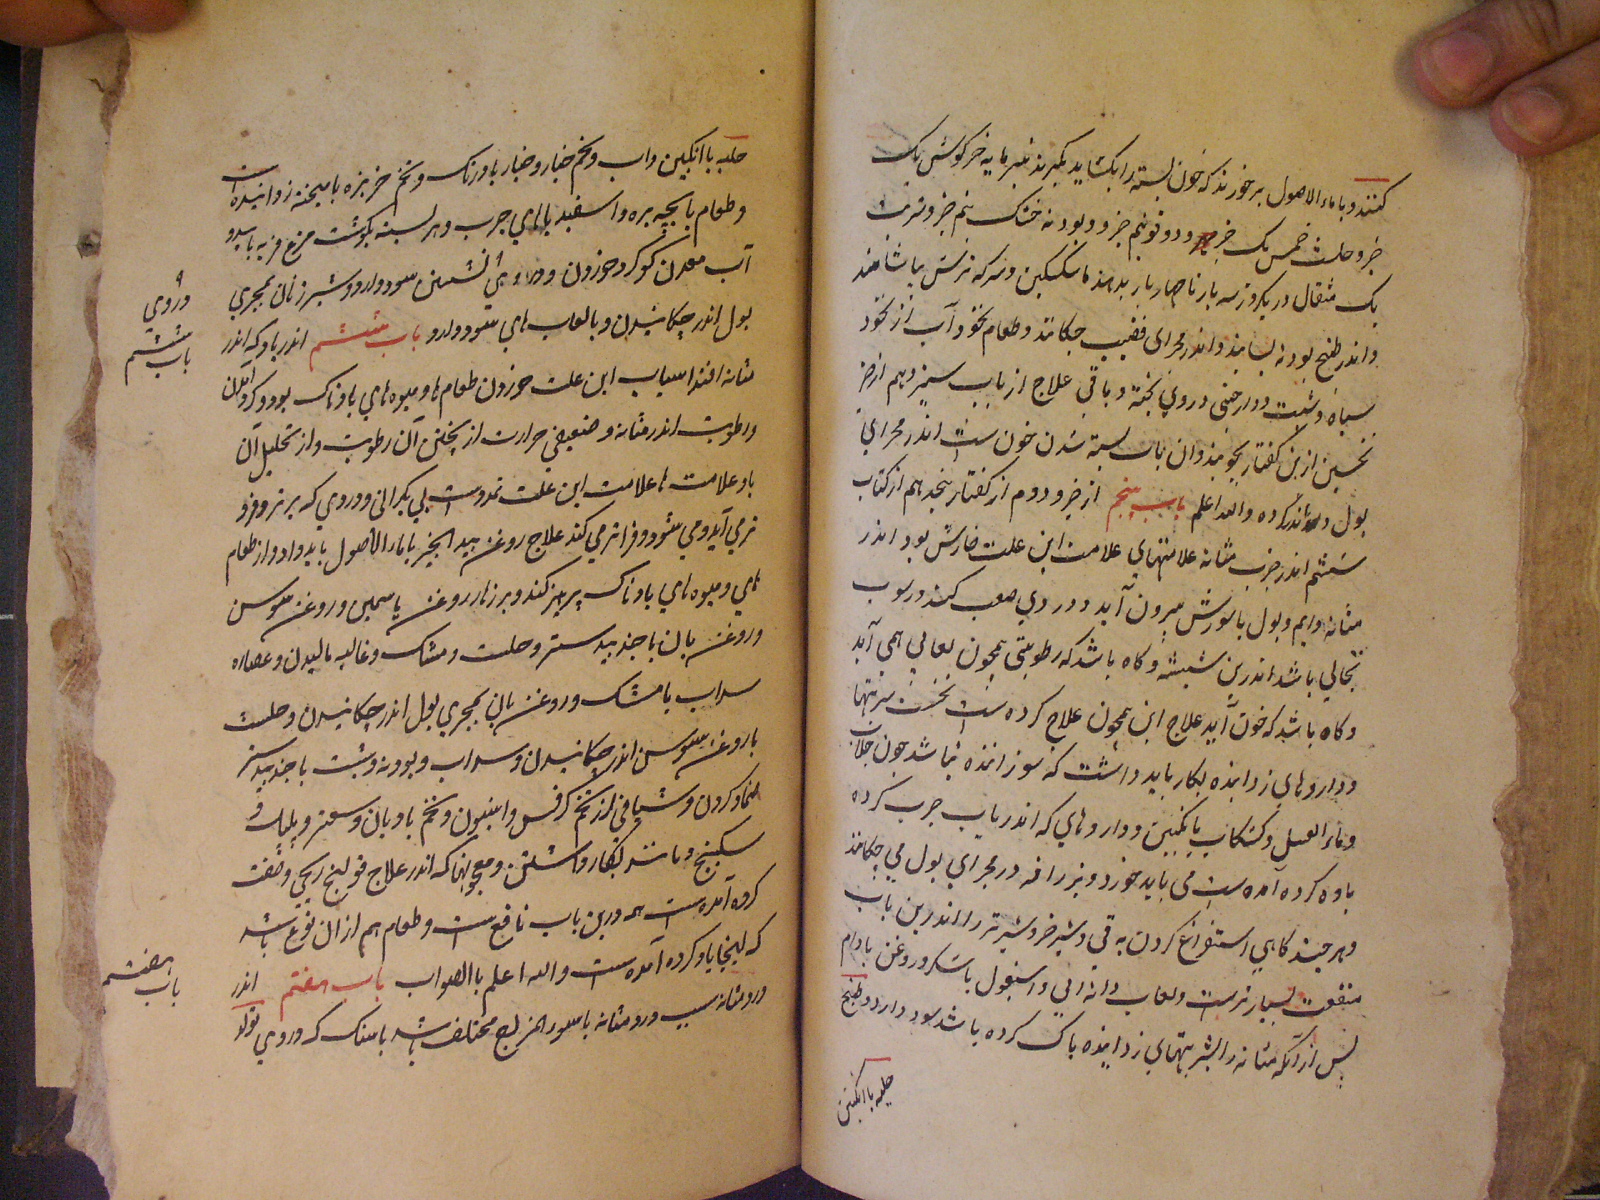 کنند و با ماء الاصول برخورند که خون بسته را بکشاید بکیرند نیرمایه خرکوش یک
جزو حلتیت خمس یک جزو و دوقو نیم جزو و پودنه خشک نیم جزو شربت
یک مثقال در یکروز سه بار تا چهار بار بدهند با سکنکبین و سرکه ترش بیاشامند
و اندر طبیخ پودنه بشانند و اندر مجرای قضیب چکانند و طعام نخود آب از نخود
سیاه و شبت و دارچینی در وی پخته و باقی علاج از باب سیزدهم از جزو
نخستین از این کفتار بجویند و آن باب بسته شدن خون ست اندر مجرای
بول و مثانه کرده والله اعلم باب پنجم از جزو دوم از کفتار پنجدهم از کتاب
ششم اندر جرب مثانه علامتهای علامت این علت خارش بود اندر
مثانه دایم و بول با سوزش بیرون آید و دردی صعب کند و رسوب
نخالی باشد اندر بن شیشه و کاه باشد که رطوبتی همچون لعابی همی آید
و کاه باشد که خون آید علاج این همچون علاج کرده ست نخست شربتها
و داروهای زداینده بکار باید داشت که سوزاننده نباشد چون جلاب
و ماء العسل و کشکاب با نکبین و داروهای که اندر باب جرب کرده
یاد کرده آمده ست می باید خورد و نیز رافه در مجرای بول می چکانند
و هر چند کاهی استفراغ کردن به قی و شیر خر و شیر بز را اندرین باب
منفعت بسیارترست و لعاب دانه آبی و اسبغول با شکر و روغن بادام
پس از آنکه مثانه را بشربتهای زداینده پاک کرده باشد سود دارد و طبیخ
حلبه با انکبین
حلبه با انکبین و آب و تخم خیار و خیار باورنک و تخم خربزه بامیخته زداینده ست
و طعام پایچه بره و اسفیدباهای چرب و هریسه بکوشت مرغ فربه باید و
آب معدن کوکرد خوردن و در وی نشستن سود دارد و شیر زنان بمجری
بول اندر چکانیدن و با لعاب های سود دارد باب ششم اندر باد که اندر
مثانه افتد اسباب این علت خوردن طعامها و میوه های بادناک بود و کرد آمدن
رطوبت اندر مثانه و ضعیفی حرارت از پختن آن رطوبت و از تحلیل آن
باد علامت ها علامت این علت تمدد ست بی کرانی و دردی که برتر و فرود
تر می آید و می شود و فراتر می کند علاج روغن بید انجیر با ماء الاصول باید داد و از طعام
های و میوه های بادناک پرهیز کند و بر زهار روغن یاسمین و روغن سوسن
و روغن بان با جندبیدستر و حلتیت و مشک و غالیه مالیدن و عصاره
سداب با مشک و روغن بان بمجری بول اندر چکانیدن و حلتیت
با روغن سوسن اندر چکانیدن و سداب و پودنه و شبت با جندبیدستر
ضماد کردن و شیافی از تخم کرفس و انیسون و تخم بادیان و سعتر و پلپل و
سکبینج و مانند بکار داشتن و معجونها که اندر علاج قولنج ریحی و صفت
کرده آمده ست همه درین باب نافع ست و طعام هم از آن نوع باشد
که اینجا یاد کرده آمده ست والله اعلم بالصواب باب هفتم اندر
درد مثانه سبب درد مثانه یا سوء المزاج مختلف باشد یا سنک که در وی تولد
در وی
باب ششم
باب هفتم